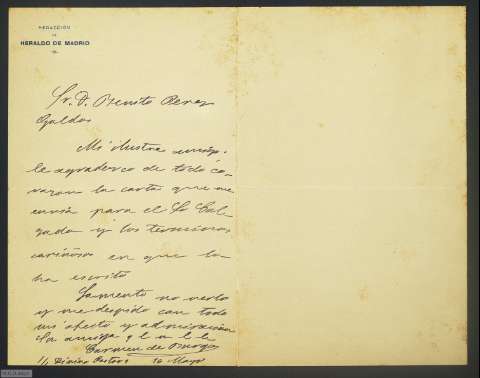 REDACCIÓN
DE
HERALDO DE MADRID
Sr. D. Benito Perez
Galdos
Mi ilustre amigo:
le agradezco de todo co-
razon la carta que me
envia para el Sr
y los terminos
cariñosos en que la
ha escrito
Lamento no verlo
y me despido con todo
mi afecto y admiracion
Su amiga q l b l
Carmen de Burgos
Divino Pastor 10 Mayo